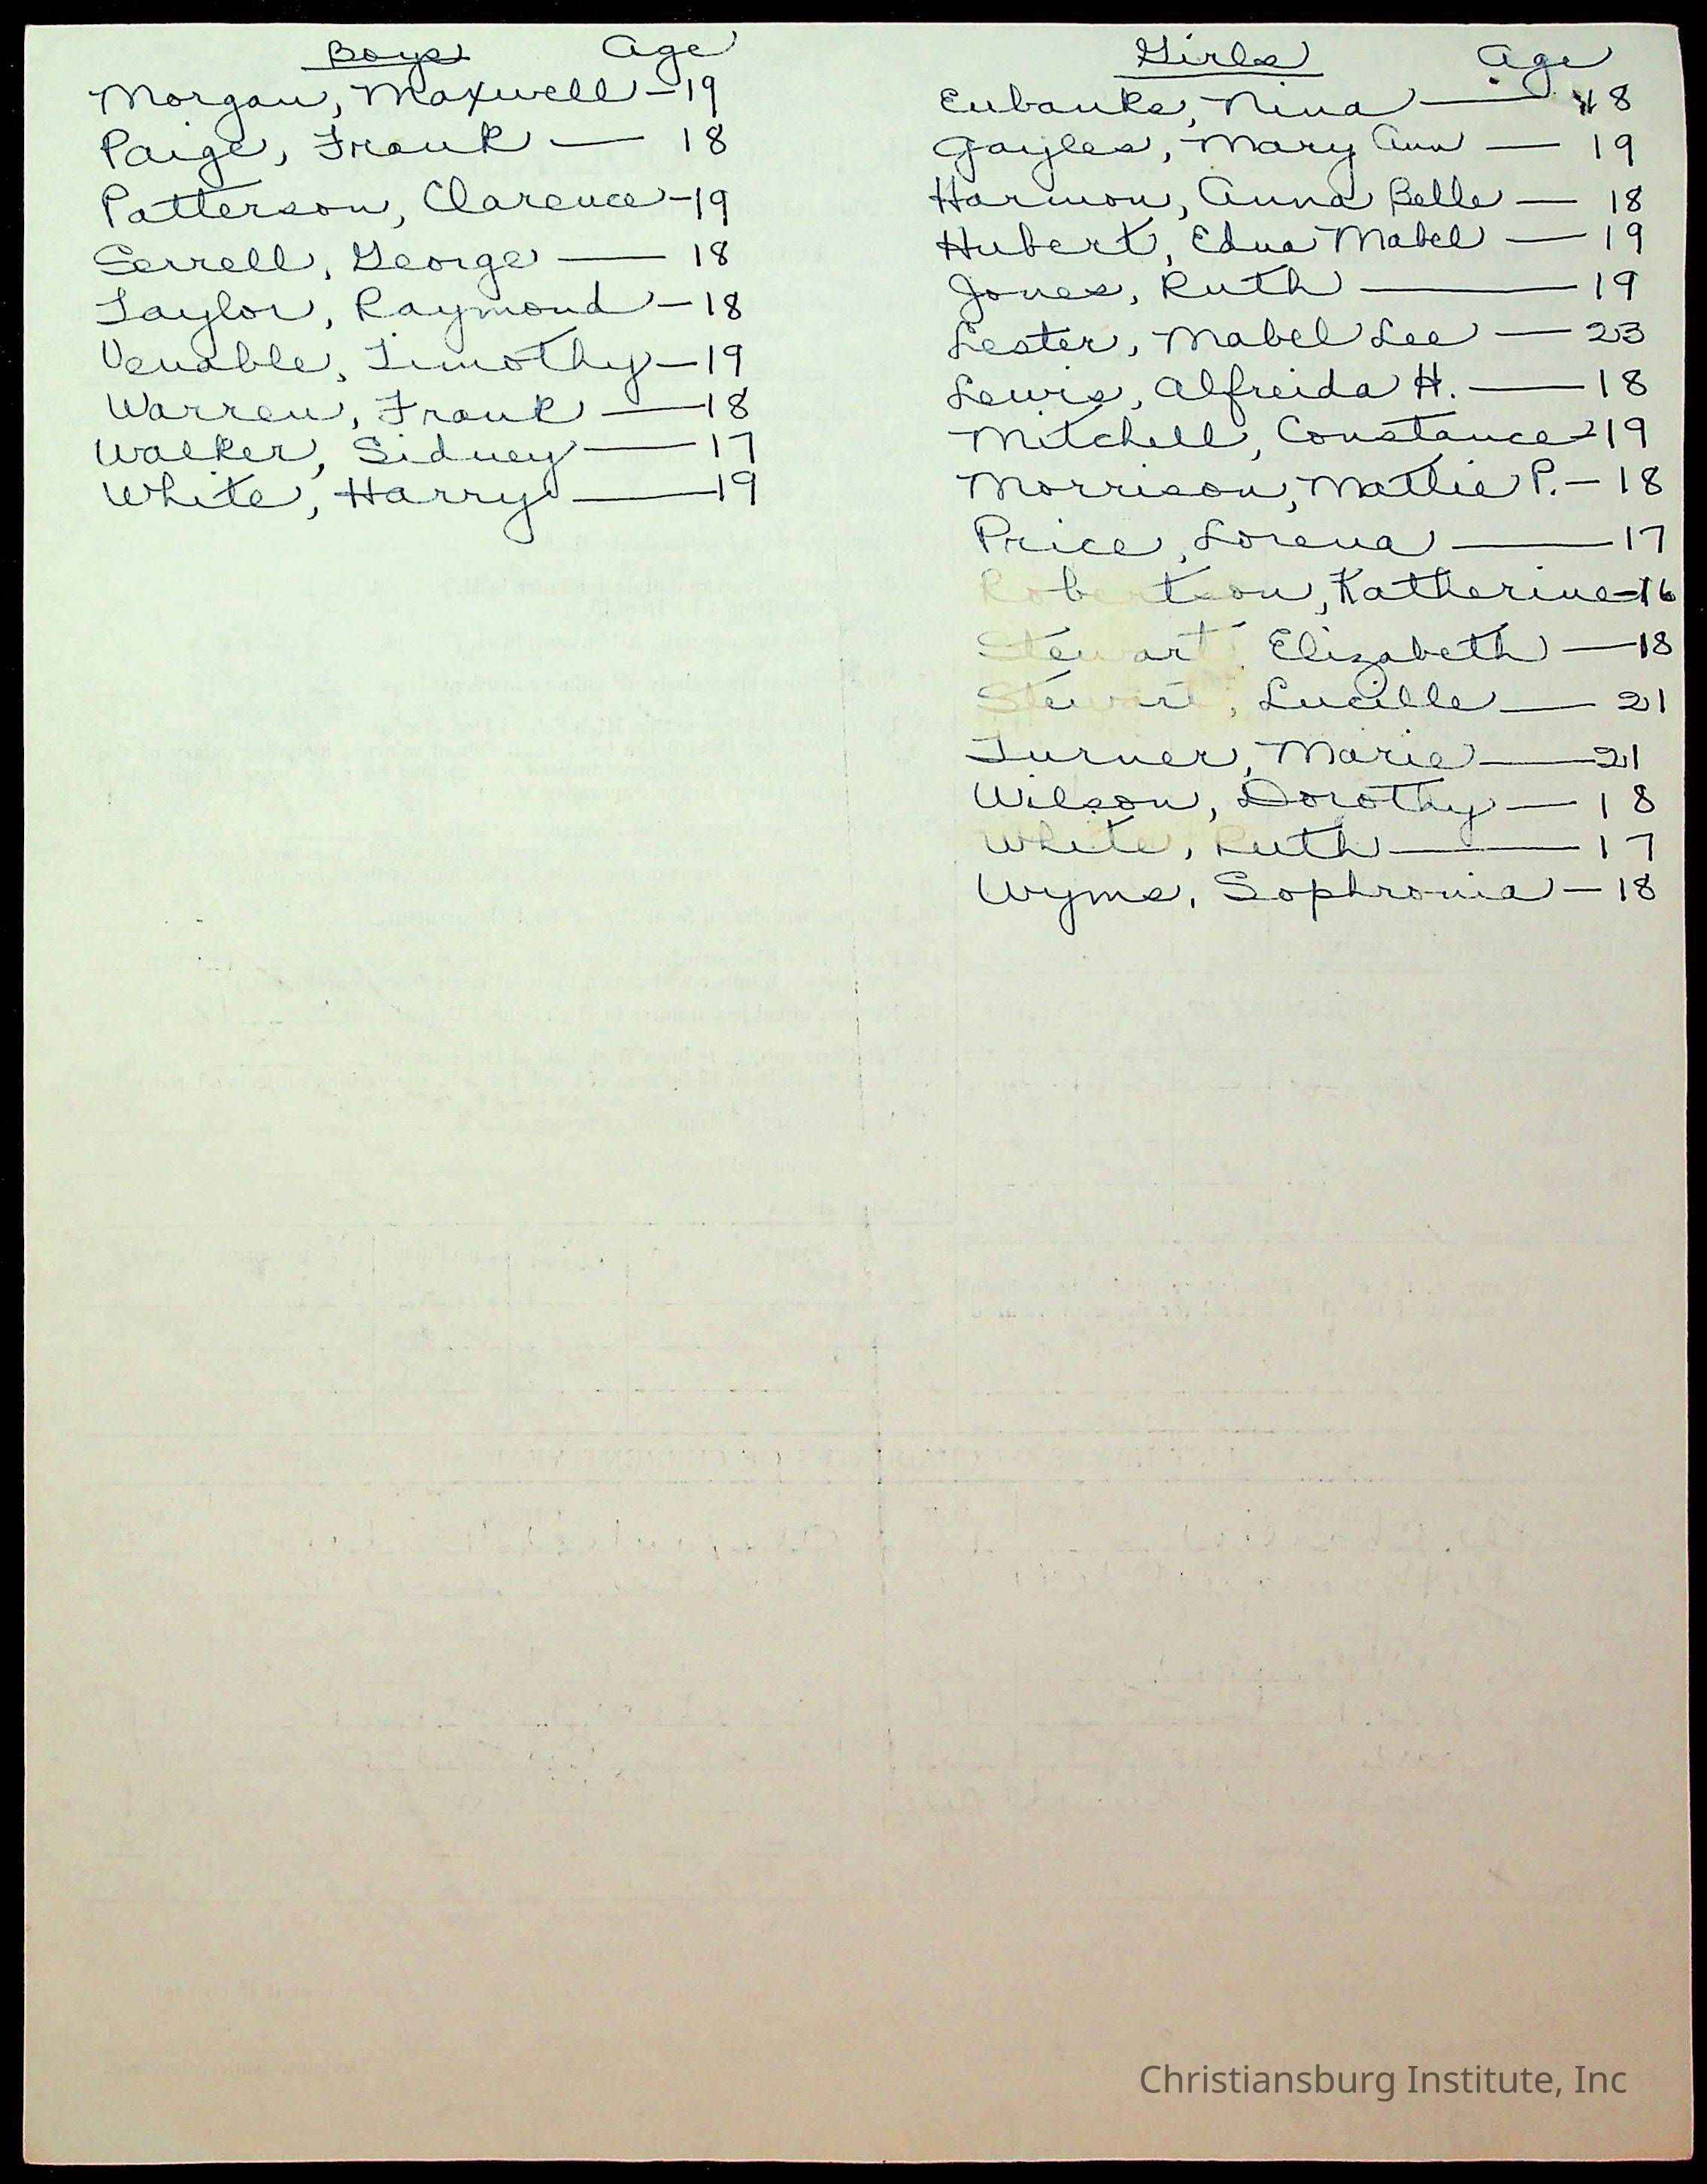 Boys Age
Morgan, Maxwell - 19
Paige, Frank — 18
Patterson, Clarence - 19
Serrell, George — 18
Taylor, Raymond - 18
Venable, Timothy - 19
Warren, Frank — 18
Walker, Sidney — 17
White, Harry — 19
Girls Age
Eubanks, Nina — 18
Gayles, Mary Ann — 19
Harmon, Anna Belle — 18
Hubert, Edna Mabel — 19
Jones, Ruth — 19
Lester, Mabel Lee — 23
Lewis, Alfreida H. — 18
Mitchell, Constance - 19
Morrison, Mattie P. - 18
Price, Lorena — 17
Robertson, Katherine - 16
Stewart, Elizabeth — 18
Stewart, Lucille — 21
Turner, Marie — 21
Wilson, Dorothy — 18
White, Ruth — 17
Wyms, Sophronia - 18
Christiansburg Institute, Inc